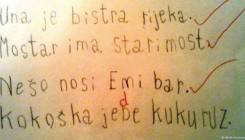 Una je bistra rijeka.
Mostar ima stari most.
Nešo nosi Emi bar.
d
Kokoška jebe kukuruz.